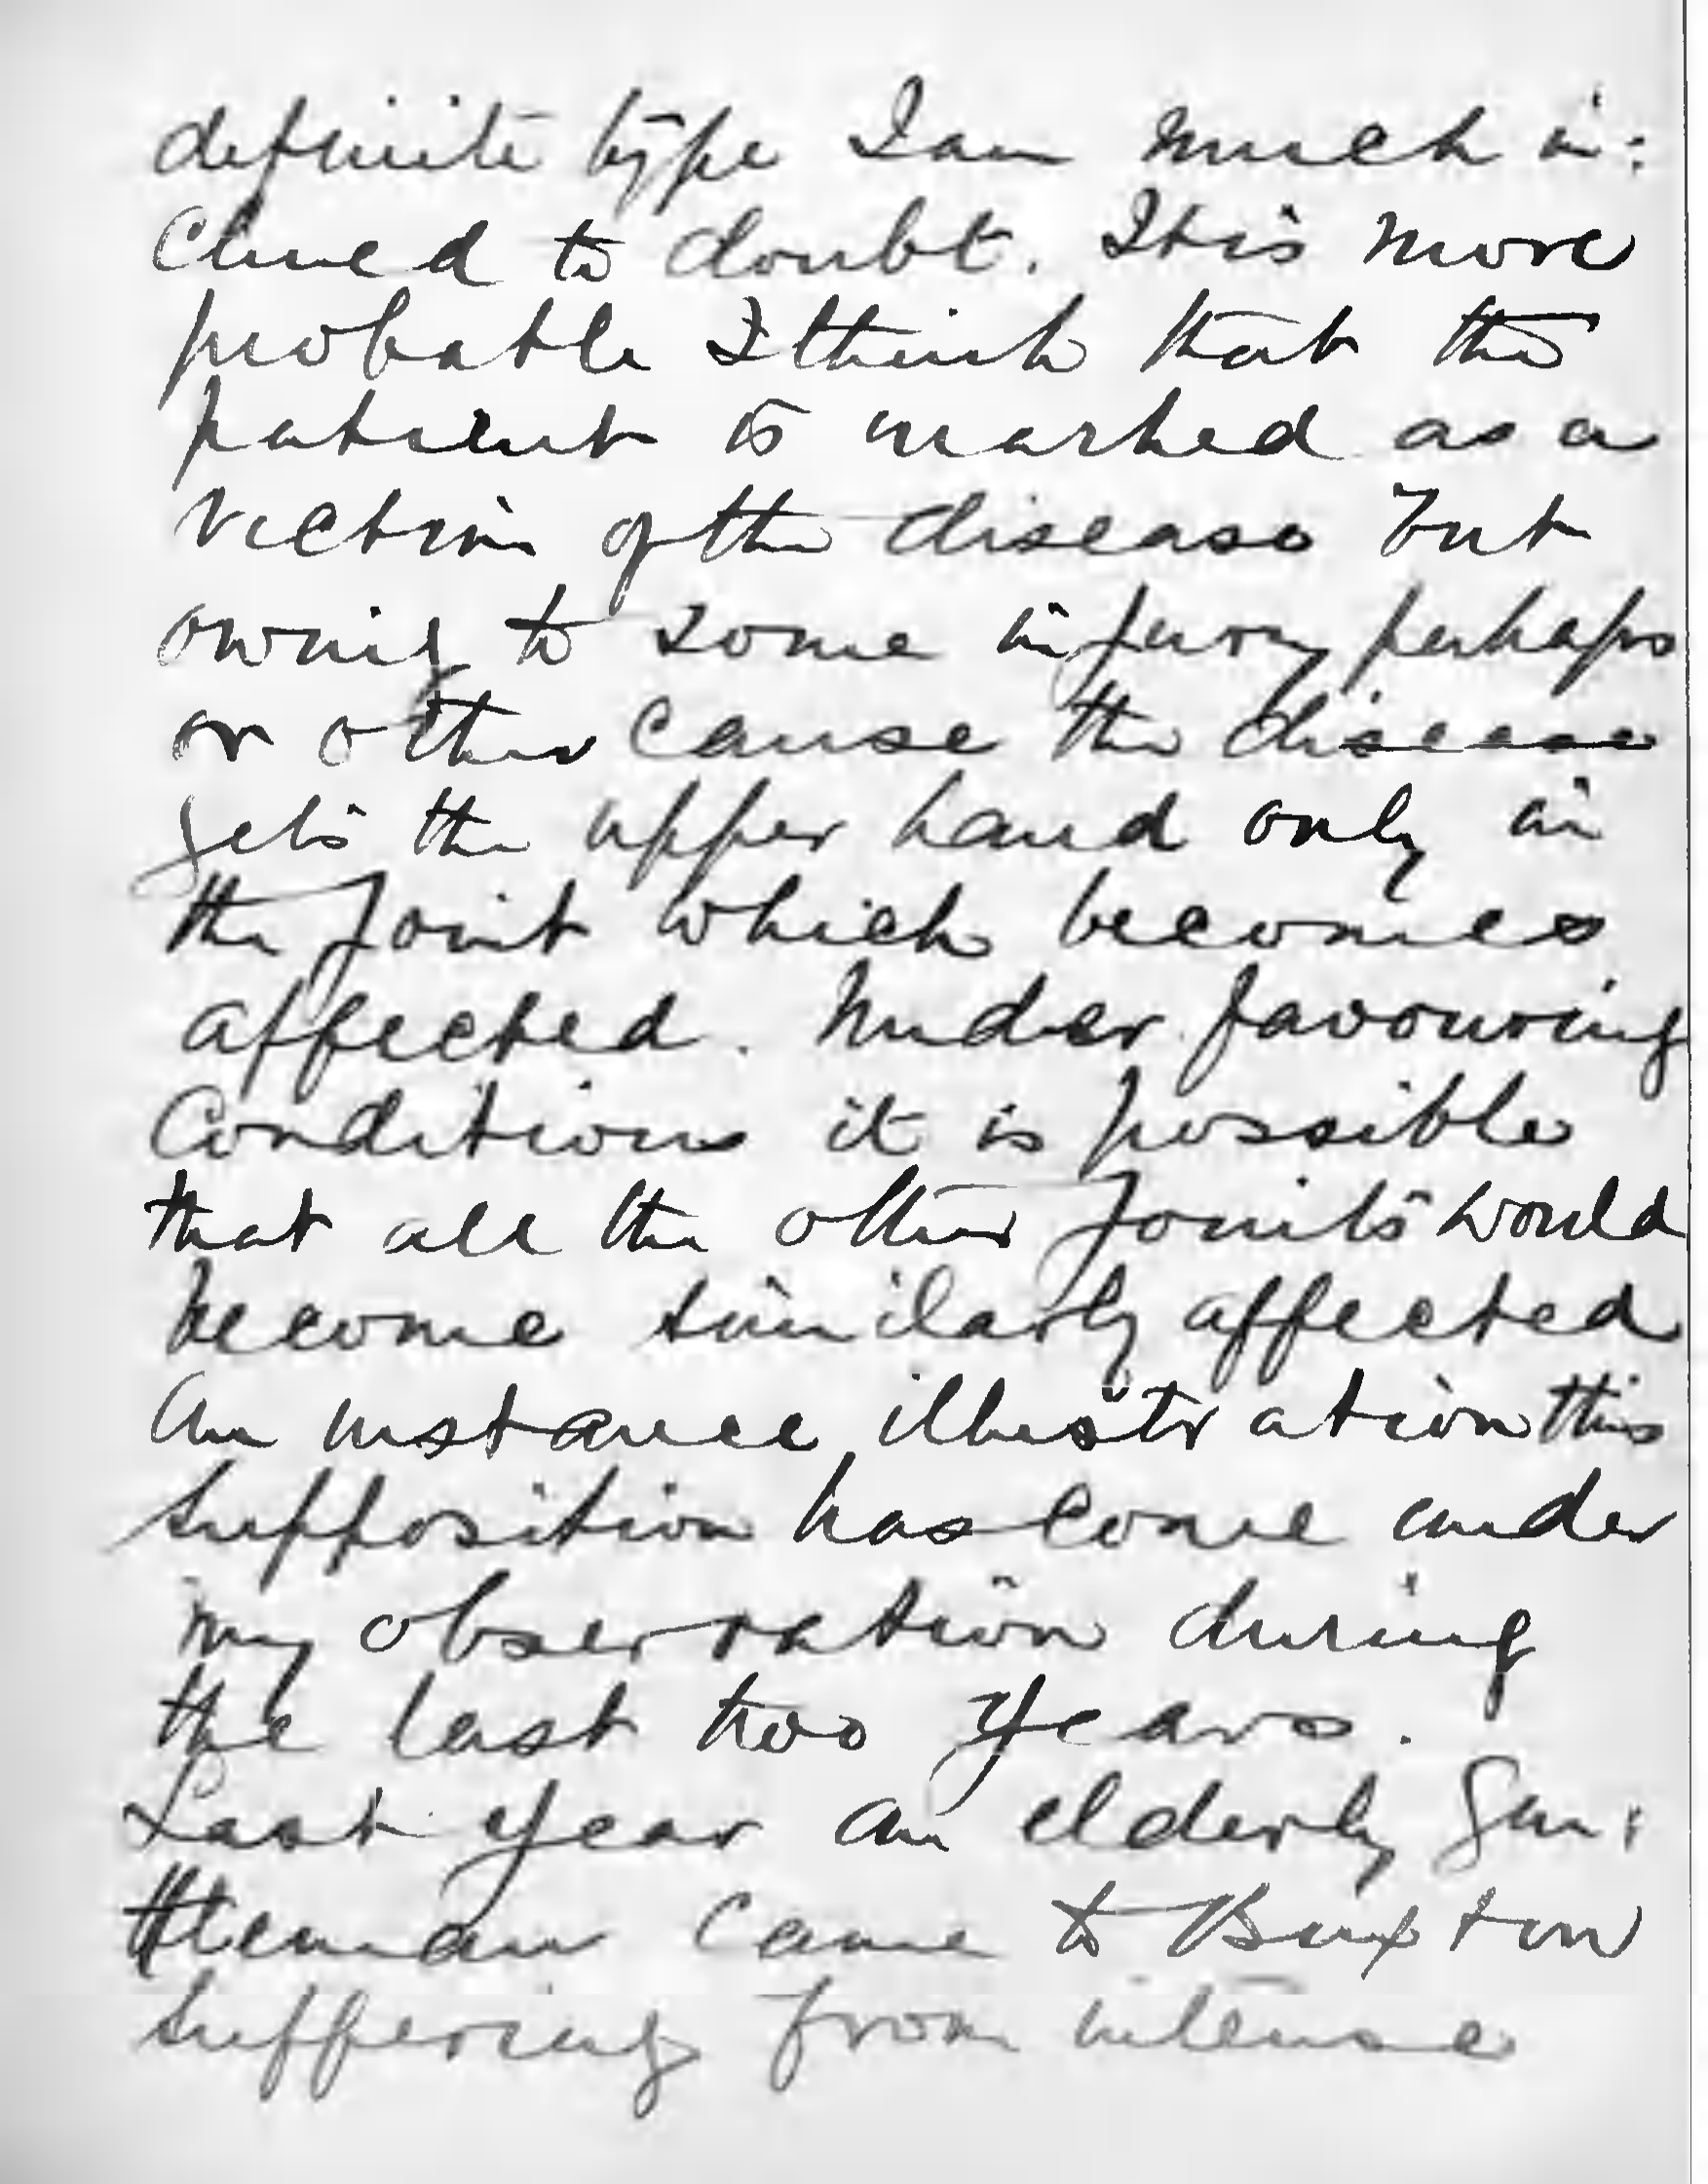 definite type I am much in:
clined to doubt. It is more
probable I think that the
patient is marked as a
victim of the disease but
owing to some injury perhaps
or other cause the disease
gets the upper hand only in
the joint which becomes
affected. Under favouring
Conditions it is possible
that all the other joints would
become similarly affected
An instance illustration this
supposition has come under
my observation during
the last two years.
Last year an elderly gen:
tleman came to Buxton
suffering from intense